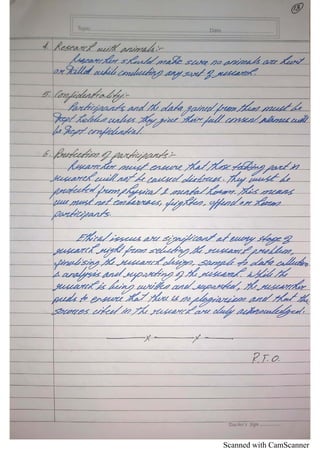 Topic
Date
4. Research with animals:-
Researcher should make sure no animals are hurt
or killed while conducting any sort of research.
5. Confidentiality:-
Participants and the data gained from them must be
kept hidden unless they give their full consent names will
be kept confidential.
6. Protection of participants:-
Researcher must ensure that those taking part in
research will not be caused distress. They must be
protected from physical & mental harm. This means
you must not embarrass, frighten, offend or harm
participants.
Ethical issues are significant at every stage of
research right from selecting the research problem,
finalising the research design, sample to data collection
& analysis and reporting of the research. While the
research is being written and reported, the researcher
needs to ensure that there is no plagiarism and that the
sources cited in the research are duly acknowledged.
x x
P.T.O.
Teacher's Sign
Scanned with CamScanner